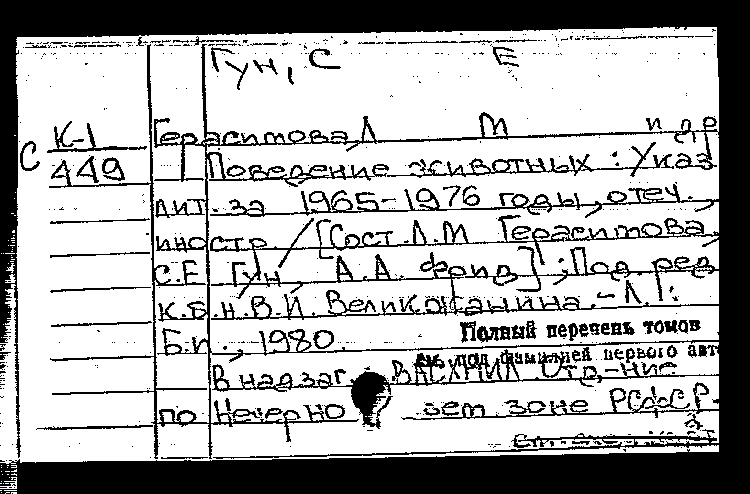 Гун, С Е
К-1
Герасимова, Л М и др
С 449
Поведение животных : Указ
лит. за 1965-1976 годы, отеч.,
иностр / [Сост. Л.М Герасимова,
С.Е Гун, А.А. Фрид] ; Под ред
к.б.н. В.И. Великжанина. - Л.:
Б.и., 1980.
Полный перечень томов
см. под фамилией первого авт
В надзаг. ВАСХНИЛ Отд-ние
по Нечерно зем зоне РСФСР-